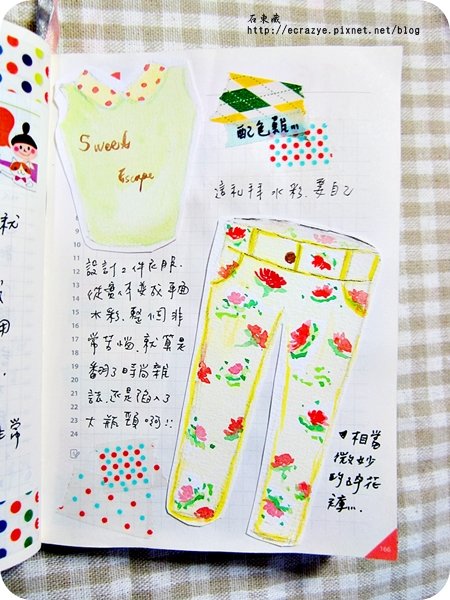 石東藏
http://ecrazye.pixnet.net/blog
配色雞
Sweet
Escape
這礼拜水彩.要自己
設計2件衣服.
從實体要放平面
水彩.整個非
常苦惱.就算是
翻了時尚雜
誌.还是陷入了
大瓶頸啊!!
相當
微妙
的碎花
褲...
就
用
非常
10
11
12
13
14
15
16
17
18
19
20
21
22
23
24
166